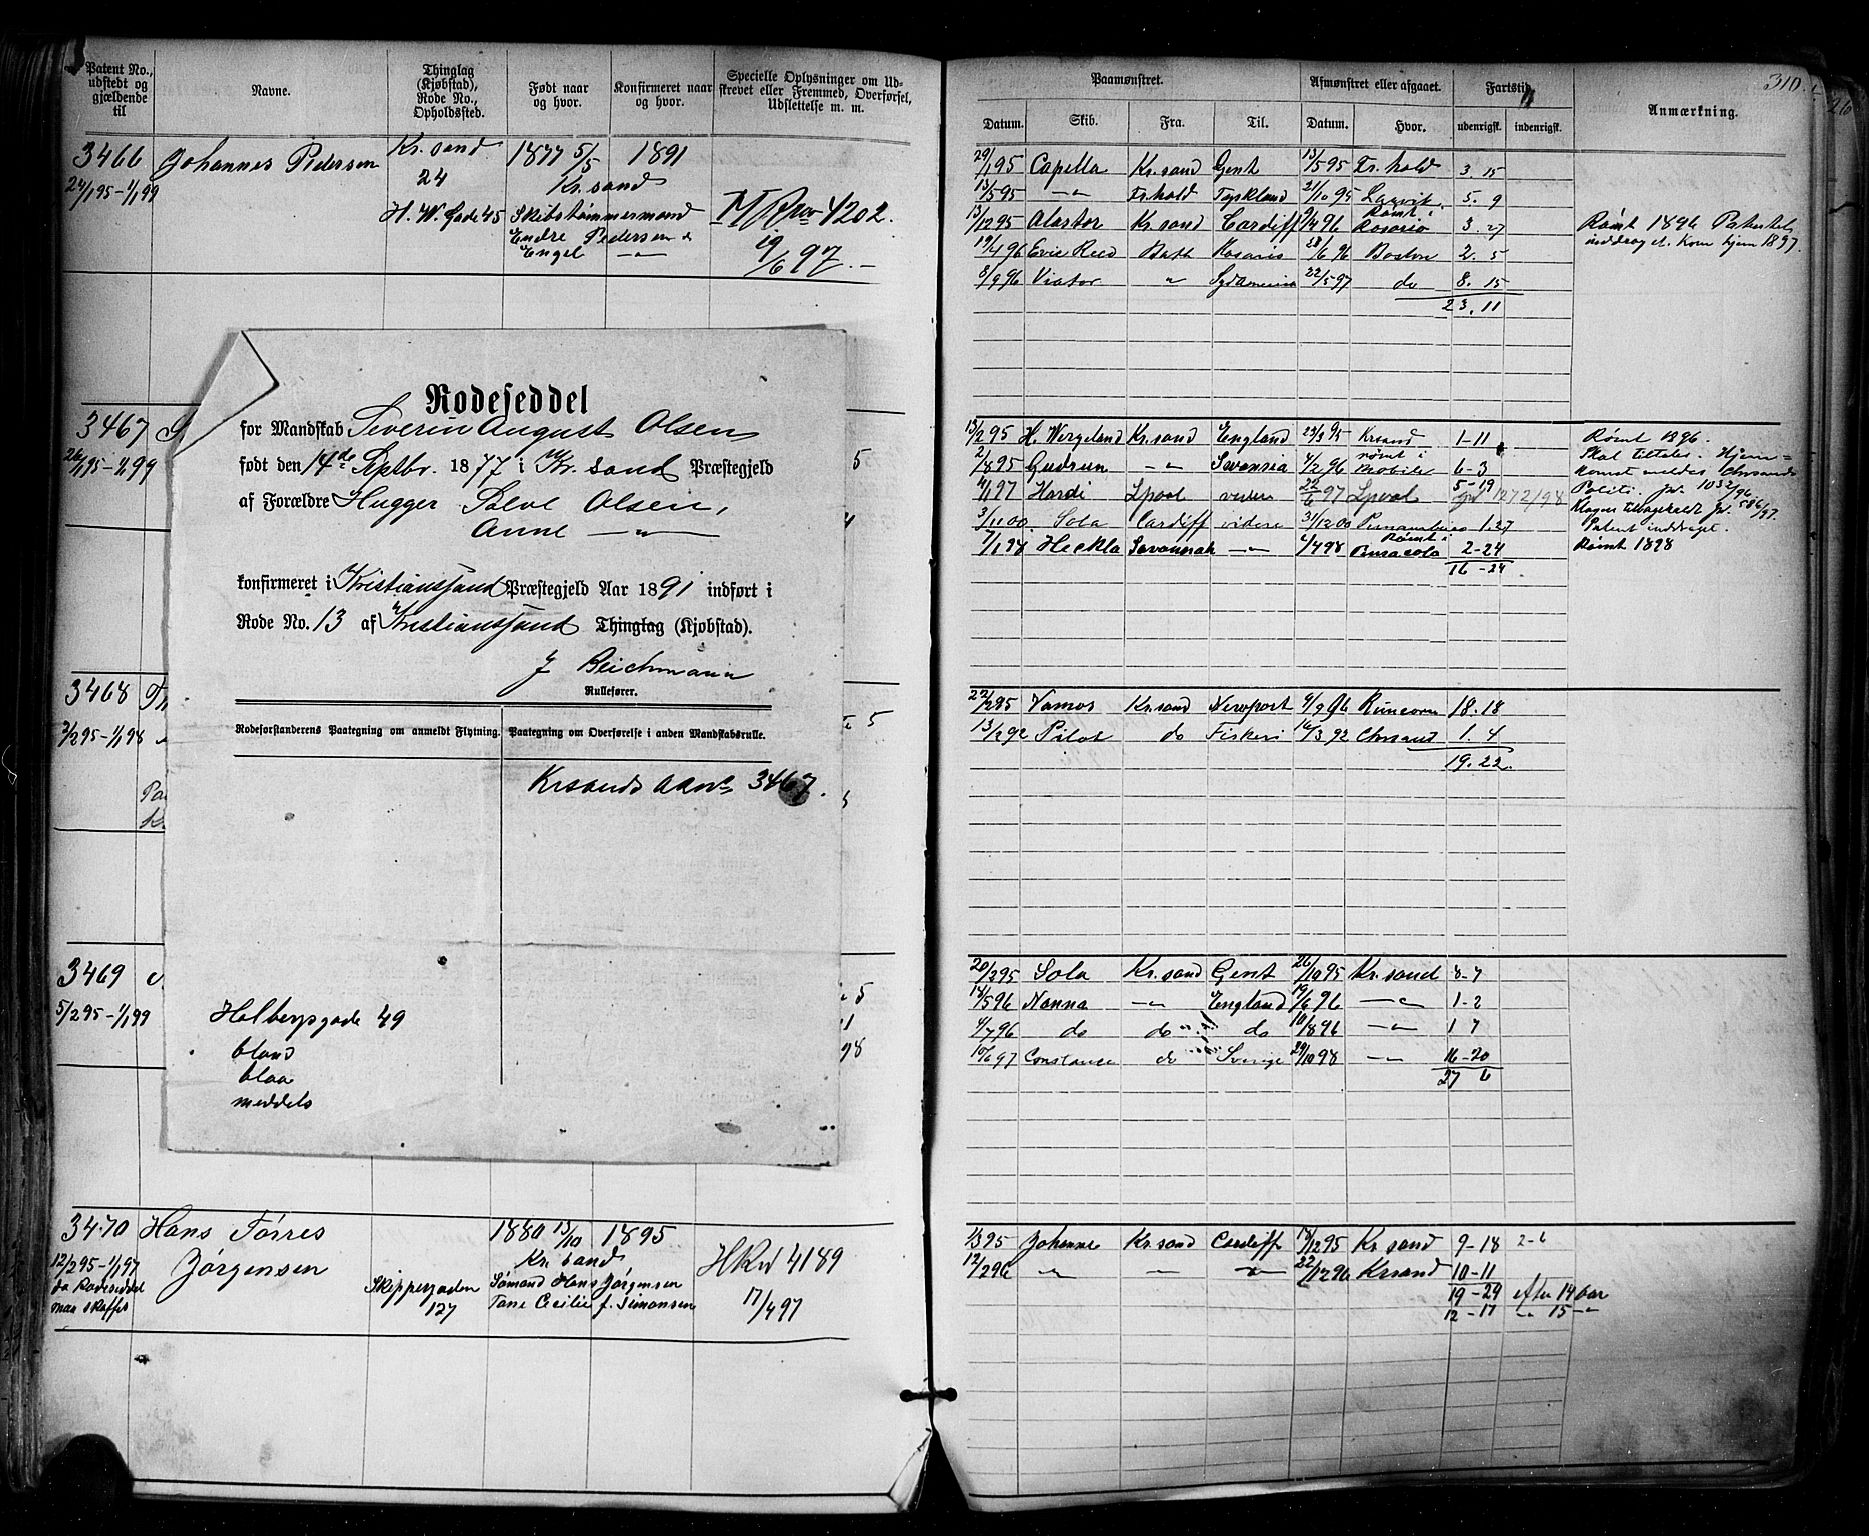 Patent No., udstedt og gjældende til
Navne.
Thinglag (Kjøbstad), Rode No., Opholdssted.
Født naar og hvor.
Konfirmeret naar og hvor.
Specielle Oplysninger om Udskrevet eller Fremmed, Overførsel, Udslettelse m. m.
3466 Johannes Pedersen Kr.sand 1877 5/5 1891
24/1 95-1/1 99 24 Kr.sand
H. W. Gade 45 Skibstømmermand
Endre Pedersen &
Engel —"—
4202.
19/6 97.—
3467
26/1 95-2 99
3468
2/2 95-1/1 98
3469
5/2 95-1/1 99
Rodeseddel
for Mandskab Severin August Olsen
født den 14de Septbr. 1877 i Kr.sand Præstegjeld
af Forældre Hugger Salve Olsen,
Anne —"—
konfirmeret i Kristianssand Præstegjeld Aar 1891 indført i
Rode No. 13 af Kristianssand Thinglag (Kjøbstad).
J Beichmann
Rullefører.
Rodeforstanderens Paategning om anmeldt Flytning.
Paategning om Overførelse i anden Mandskabsrulle.
Krsands 3467.
Holbergsgade 49
blond
blaa
meddels
3470 Hans Tórres 1880 13/10 1895
12/2 95-1/1 97 Jørgensen Kr.sand
Skippergaden 127
Sømand Hans Jørgensen
Tane Cecilie f. Simonsen
4189
17/4 97
310
Paamønstret.
Afmønstret eller afgaaet.
Fartstid
Anmærkning.
Datum. Skib. Fra. Til. Datum. Hvor. udenrigsk. indenrigsk.
29/1 95 Capella Kr.sand Gent 13/5 95 Fr.hald 3. 15
13/5 95 —"— Fr.hald Tyskland 21/10 95 Larvik 5. 9
13/12 95 Alastor Kr.sand Cardiff 9/4 96 Rømt i Rosario 3. 27 Rømt 1896 Patentet
inddraget. Kom hjem 1897.
19/4 96 Evie Reed Bath Rosario 28/6 96 Boston 2. 5
8/9 96 Viator " Sydamerica 22/5 97 do 8. 15
23. 11
13/2 95 H. Wergeland Kr.sand England 23/3 95 Krsand 1-11 Rømt 1896.
2/8 95 Gudrun —"— Swansea 4/2 96 rømt i Mobile 6-3 Skal tiltales. Hjem=
komst meldes Chrsands
4/1 97 Hardi Lpool videre 22/6 97 Lpool 5-19 Politi. Jr. 1032/96
3/11 00. Sola Cardiff videre 31/12 00 Pernambuco 1.27 Patent inddraget.
7/1 98 Heckla Savannah —"— 98 Rømt i Pensacola 2-24 Rømt 1898
16-24
22/2 95 Vamos Kr.sand Newport 9/9 96 Runcorn 18.18
13/2 92 Pilot do Fiskeri 16/3 92 Chrsand 1. 4
19. 22.
20/2 95 Sola Kr.sand Gent 26/10 95 Kr.sand 8-7
14/5 96 Nanna —"— England 19/6 96 —"— 1-2
4/7 96 do do do 10/8 96 —"— 1 7
10/6 97 Constance do Sverige 29/10 98 —"— 16-20
27 6
1/3 95 Johanne Kr.sand Cardiff 19/12 95 Kr.sand 9-18 2-6
12/2 96 " — " 22/12 96 Krsand 10-11
19-29 efter 14 aar
12-17 —"— 15 —"—